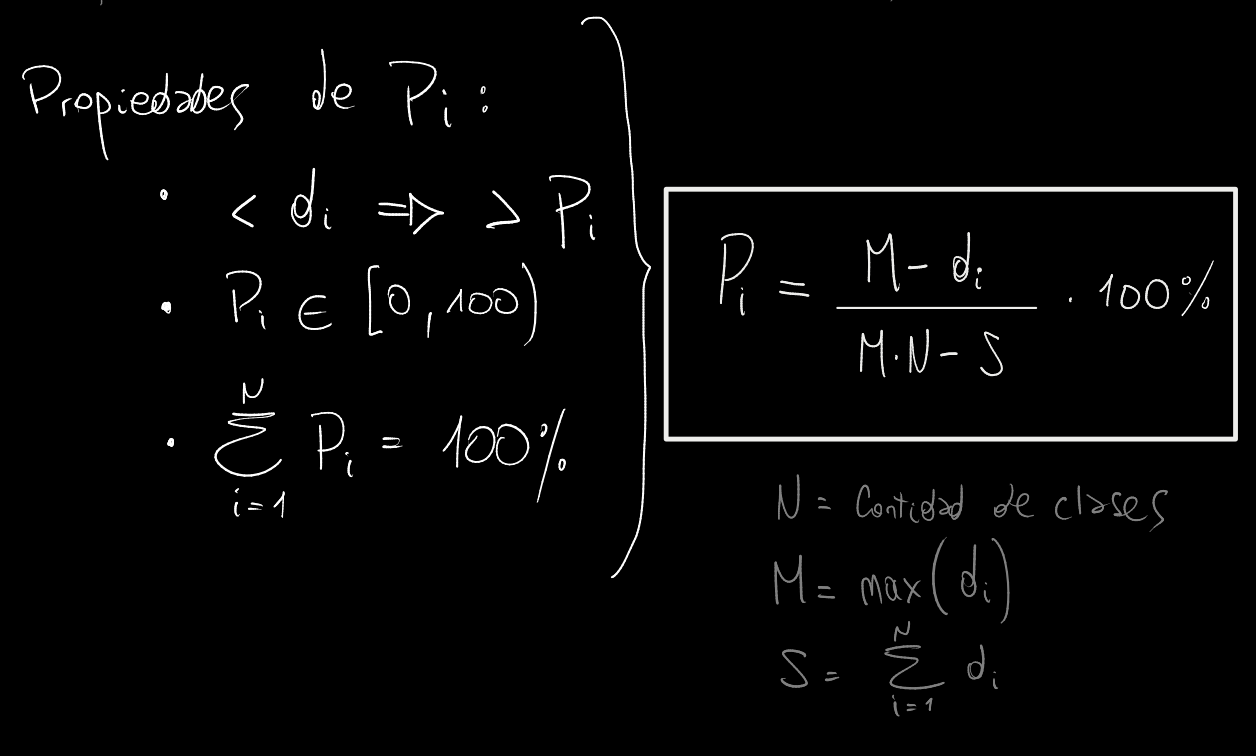 Propiedades de Pi :
• < di => > Pi
• Pi ∈ [0, 100)
• N
Σ Pi = 100%
i=1
Pi = (M - di) / (M·N - S) · 100%
N = Cantidad de clases
M = max(di)
N
S = Σ di
i=1